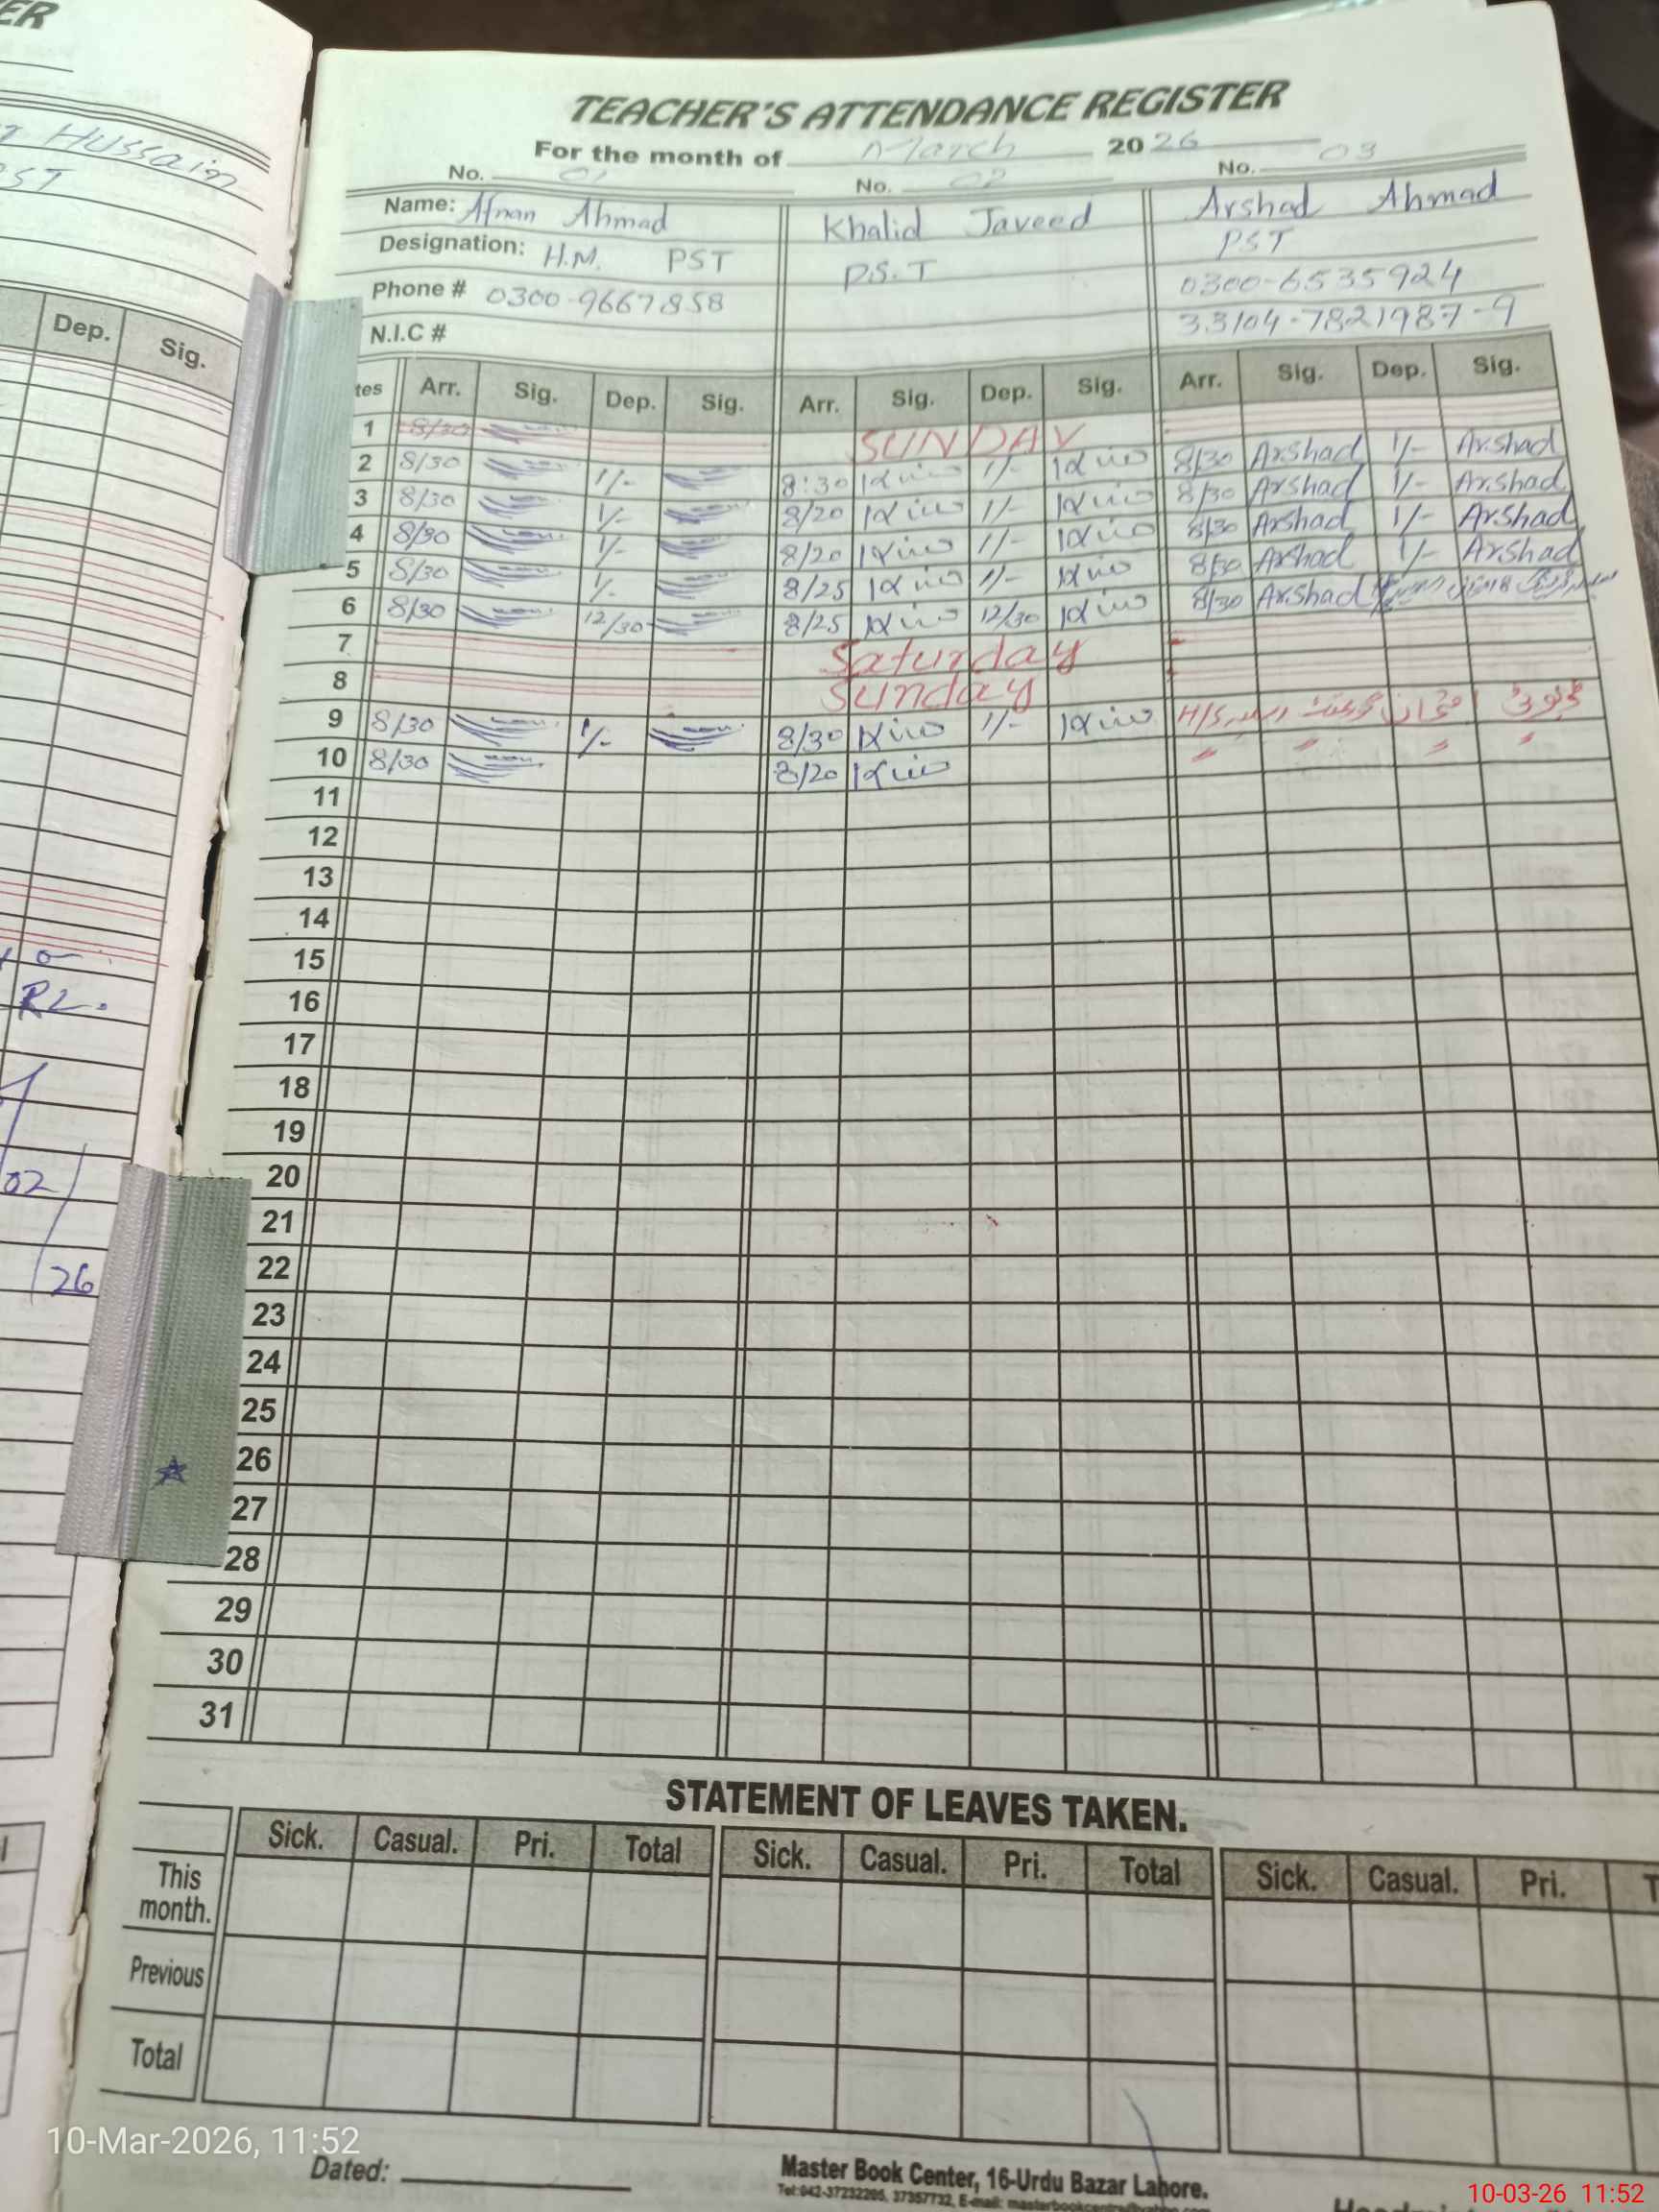 ER
Hussain
PST
Dep. Sig.
RL.
02
26
TEACHER'S ATTENDANCE REGISTER
For the month of March 2026
No. 01 No. 02 No. 03
Name: Afnan Ahmad Khalid Javeed Arshad Ahmad
Designation: H.M. PST P.S.T PST
Phone # 0300-9667858 0300-6535924
N.I.C # 33104-7821987-9
tes Arr. Sig. Dep. Sig. Arr. Sig. Dep. Sig. Arr. Sig. Dep. Sig.
1 8/30 SUNDAY
2 8/30 1/- 8:30 1/- 8/30 Arshad 1/- Arshad
3 8/30 1/- 8/20 1/- 8/30 Arshad 1/- Arshad
4 8/30 1/- 8/20 1/- 8/30 Arshad 1/- Arshad
5 8/30 1/- 8/25 1/- 8/30 Arshad 1/- Arshad
6 8/30 12/30 8/25 12/30 8/30 Arshad
7 Saturday
8 Sunday
9 8/30 1/- 8/30 1/- ڈیوٹی امتحان گورنمنٹ H/S
10 8/30 8/20 " " " "
11
12
13
14
15
16
17
18
19
20
21
22
23
24
25
26
27
28
29
30
31
STATEMENT OF LEAVES TAKEN.
Sick. Casual. Pri. Total Sick. Casual. Pri. Total Sick. Casual. Pri. T
This month.
Previous
Total
10-Mar-2026, 11:52
Dated:
Master Book Center, 16-Urdu Bazar Lahore.
Tel:042-37232205, 37357732, E-mail:
10-03-26 11:52